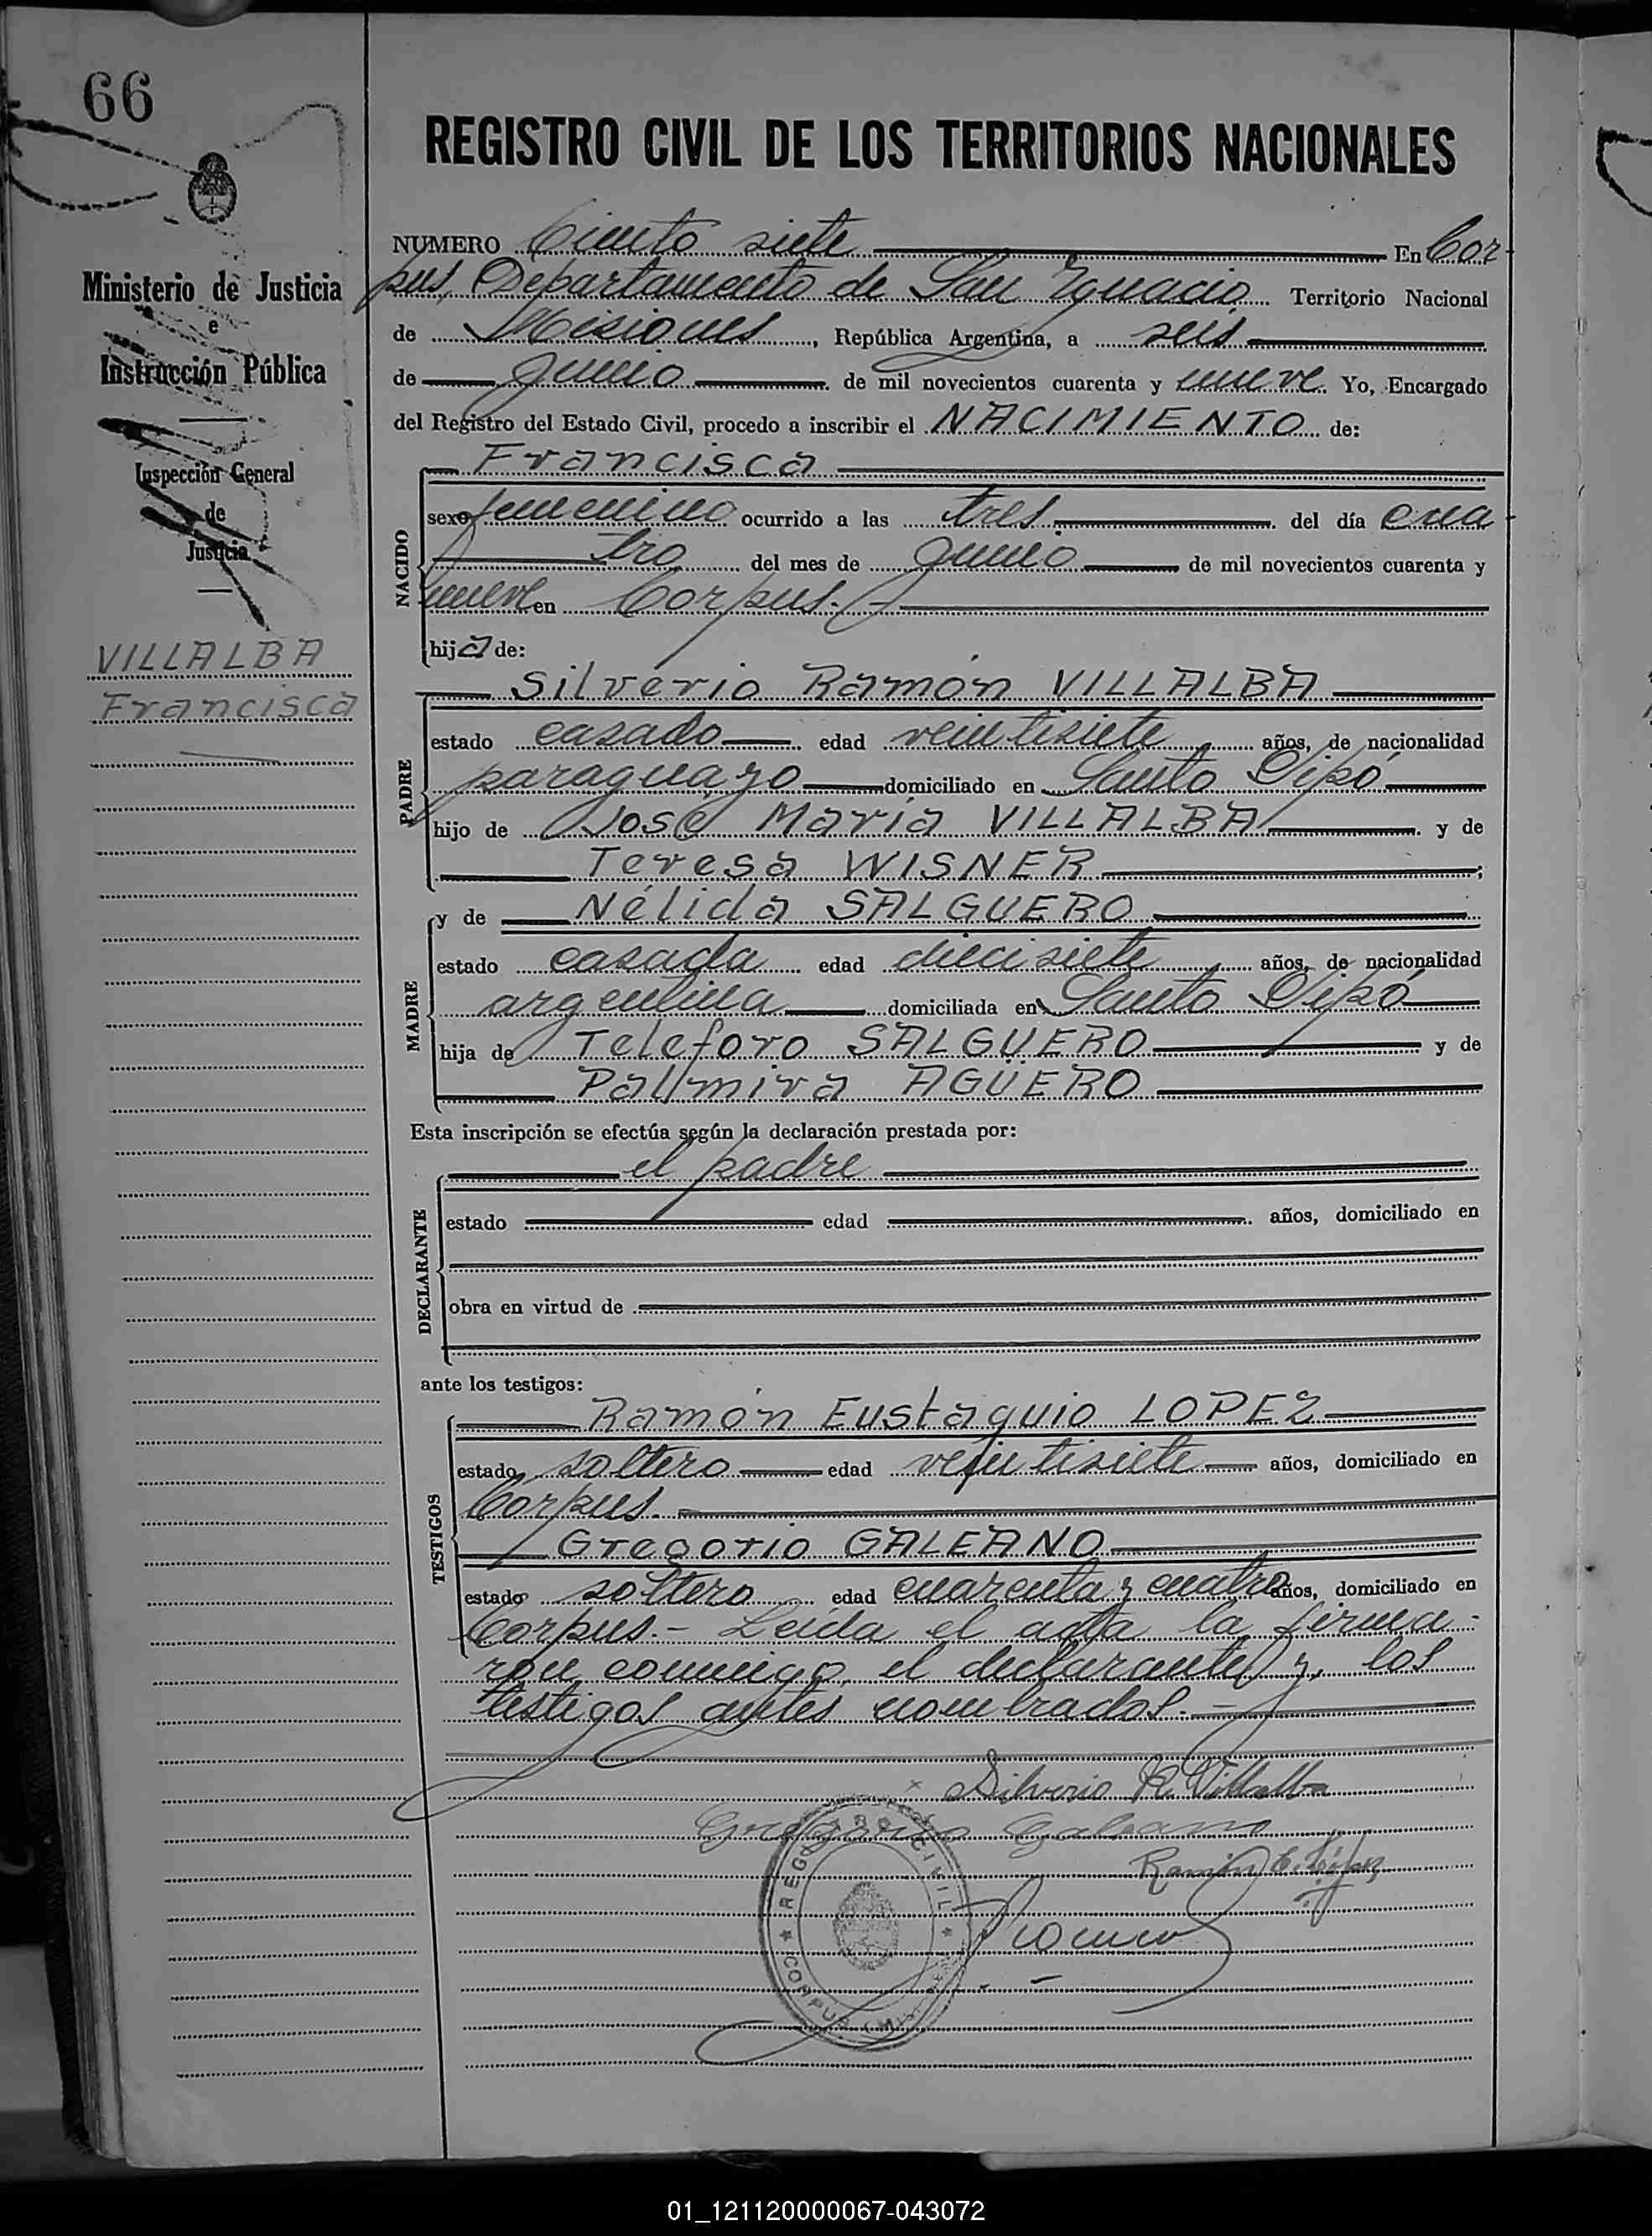 66
REGISTRO CIVIL DE LOS TERRITORIOS NACIONALES
Ministerio de Justicia
e
Instrucción Pública
Inspección General
de
Justicia
VILLALBA
Francisca
NUMERO Ciento siete En Cor-
pus, Departamento de San Ignacio Territorio Nacional
de Misiones, República Argentina, a seis
de junio de mil novecientos cuarenta y nueve Yo, Encargado
del Registro del Estado Civil, procedo a inscribir el NACIMIENTO de:
Francisca
NACIDO
sexo femenino ocurrido a las tres del día cua-
tro del mes de junio de mil novecientos cuarenta y
nueve en Corpus.-
hija de:
Silverio Ramón VILLALBA
PADRE
estado casado edad veintisiete años, de nacionalidad
paraguayo domiciliado en Santo Pipó
hijo de José María VILLALBA y de
Teresa WISNER ;
y de Nélida SALGUERO
MADRE
estado casada edad diecisiete años, de nacionalidad
argentina domiciliada en Santo Pipó
hija de Teleforo SALGUERO y de
Palmira AGÜERO
Esta inscripción se efectúa según la declaración prestada por:
el padre
DECLARANTE
estado edad años, domiciliado en
obra en virtud de
ante los testigos:
Ramón Eustaquio LOPEZ
TESTIGOS
estado soltero edad veintisiete años, domiciliado en
Corpus.
Gregorio GALEANO
estado soltero edad cuarenta y cuatro años, domiciliado en
Corpus.- Leída el acta la firma-
ron conmigo el declarante y los
testigos antes nombrados.-
Silverio R. Villalba
Gregorio Galeano
Ramón E. López
REGISTRO CIVIL
CORPUS (MISIONES)
01_121120000067-043072